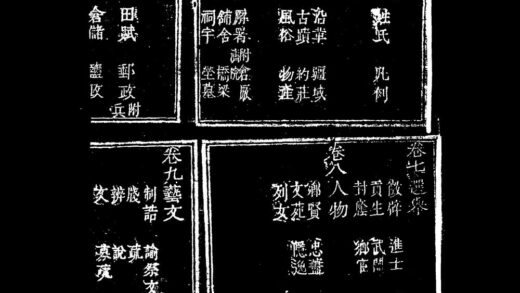 姓氏 凡例
沿革 疆域
古蹟 約莊
風俗 物產
廨署 附倉厫
舖舍 橋梁
祠宇 塋墓
田賦 郵政 附兵
倉儲 鹽政
卷七選舉
徵辟 進士
貢生 武閥
封廕 鄉官
卷八人物
鄉賢 忠藎
文苑 隱逸
列女
卷九藝文
制誥 諭祭文
牋 疏
辨 說
文 墓表